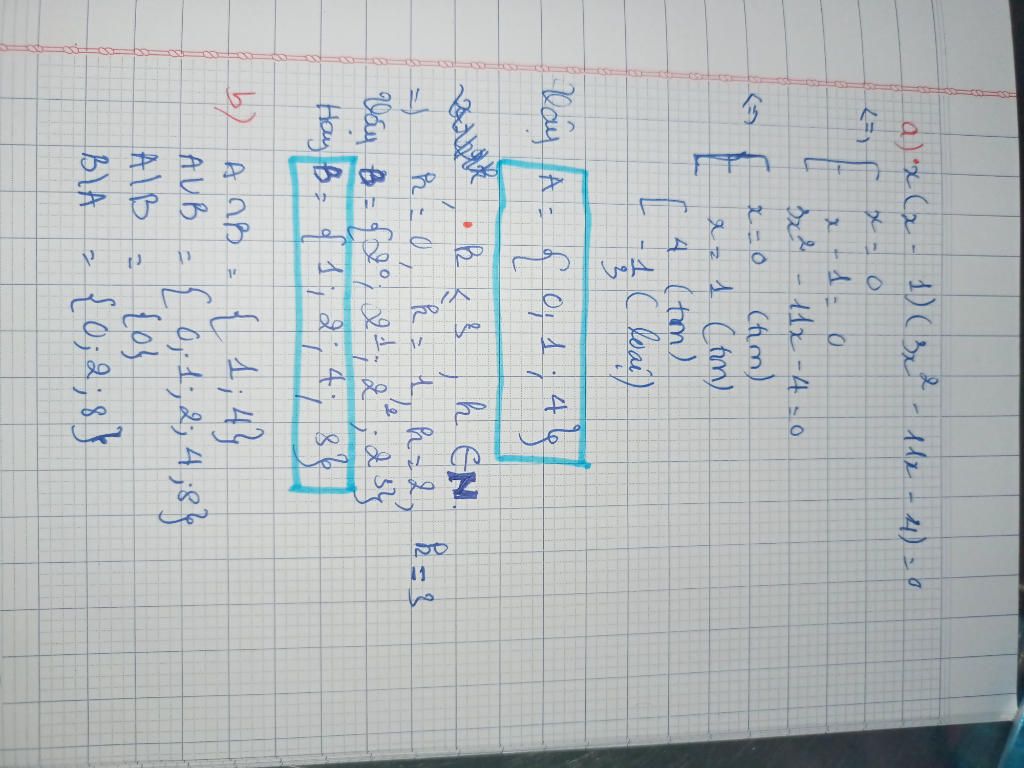 a) • x(x - 1)(3x² - 11x - 4) = 0
<=> [ x = 0
x - 1 = 0
3x² - 11x - 4 = 0
<=> [ x = 0 (tm)
x = 1 (tm)
[ 4 (tm)
-1/3 (loại)
Vậy A = { 0; 1; 4}
• k ≤ 3, k ∈ N.
=> k = 0, k = 1, k = 2, k = 3
Vậy B = {2⁰; 2¹; 2²; 2³}
Hay B = { 1; 2; 4; 8}
b) A ∩ B = { 1; 4}
A∪B = { 0; 1; 2; 4; 8}
A\B = {0}
B\A = {0; 2; 8}